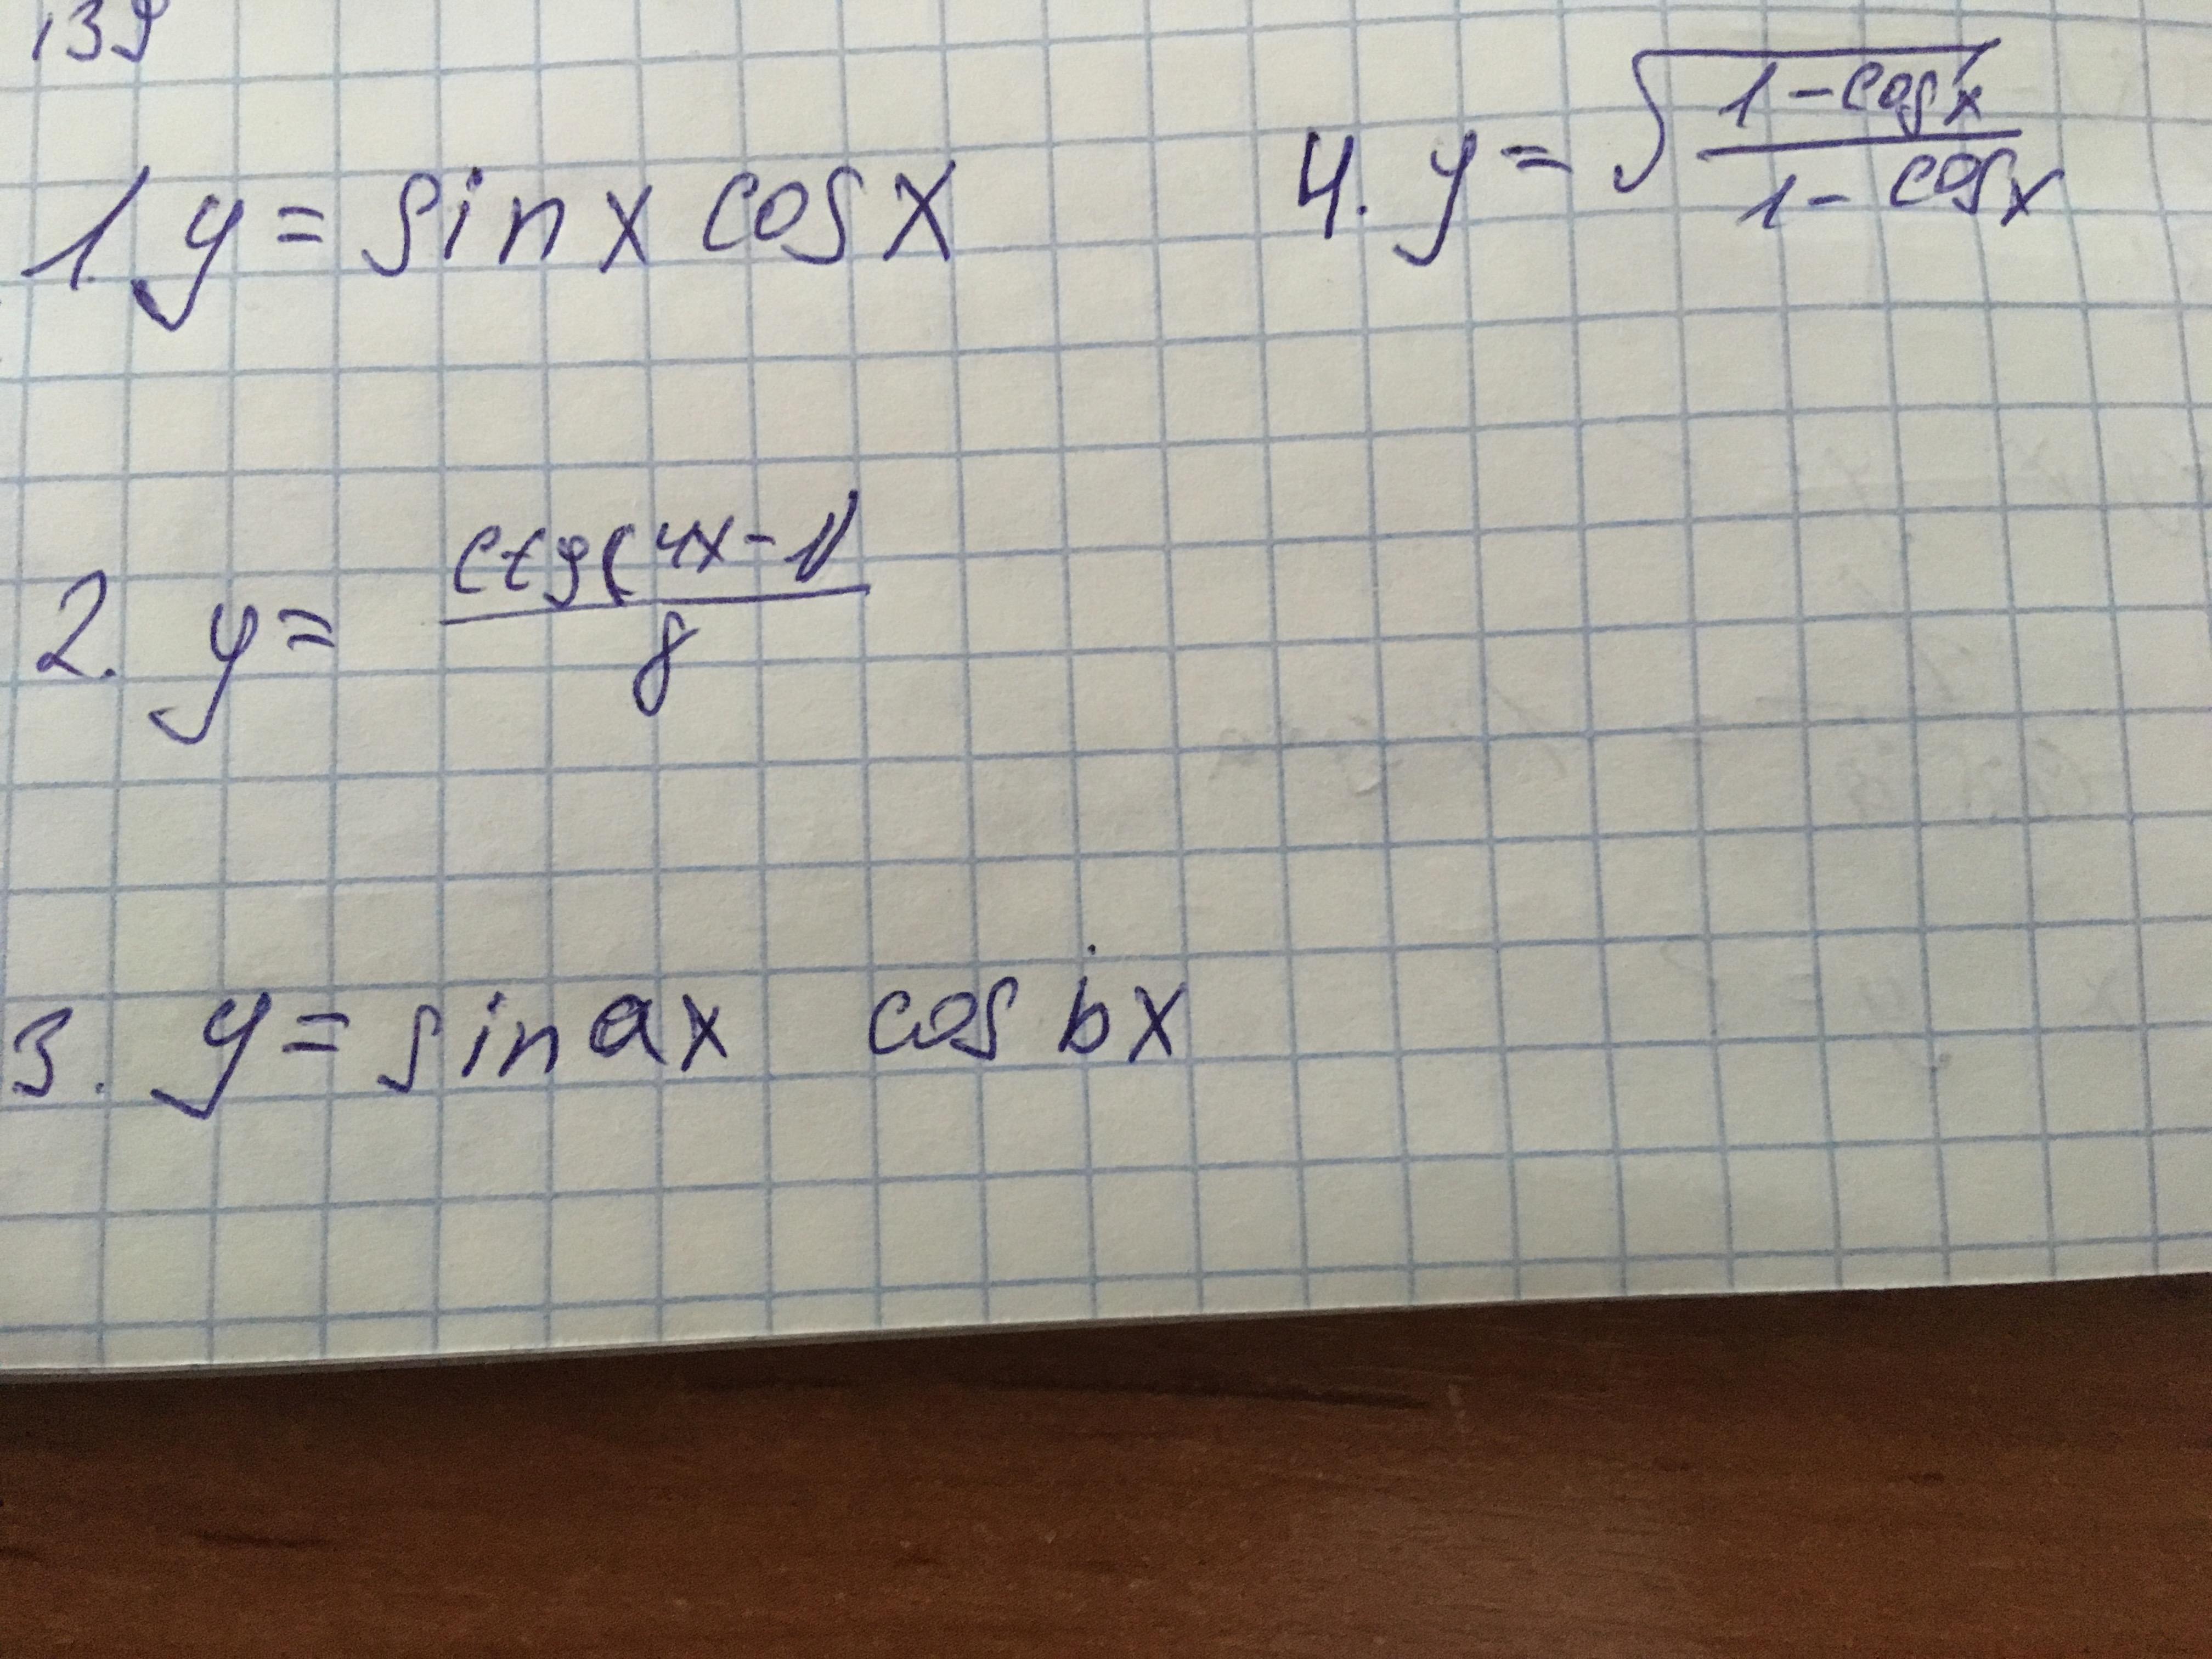 139
1. y = sin x cos x
4. y = √((1 - cos x)/(1 - cos x))
2. y = ctg(4x - 1)/8
3. y = sin ax cos bx